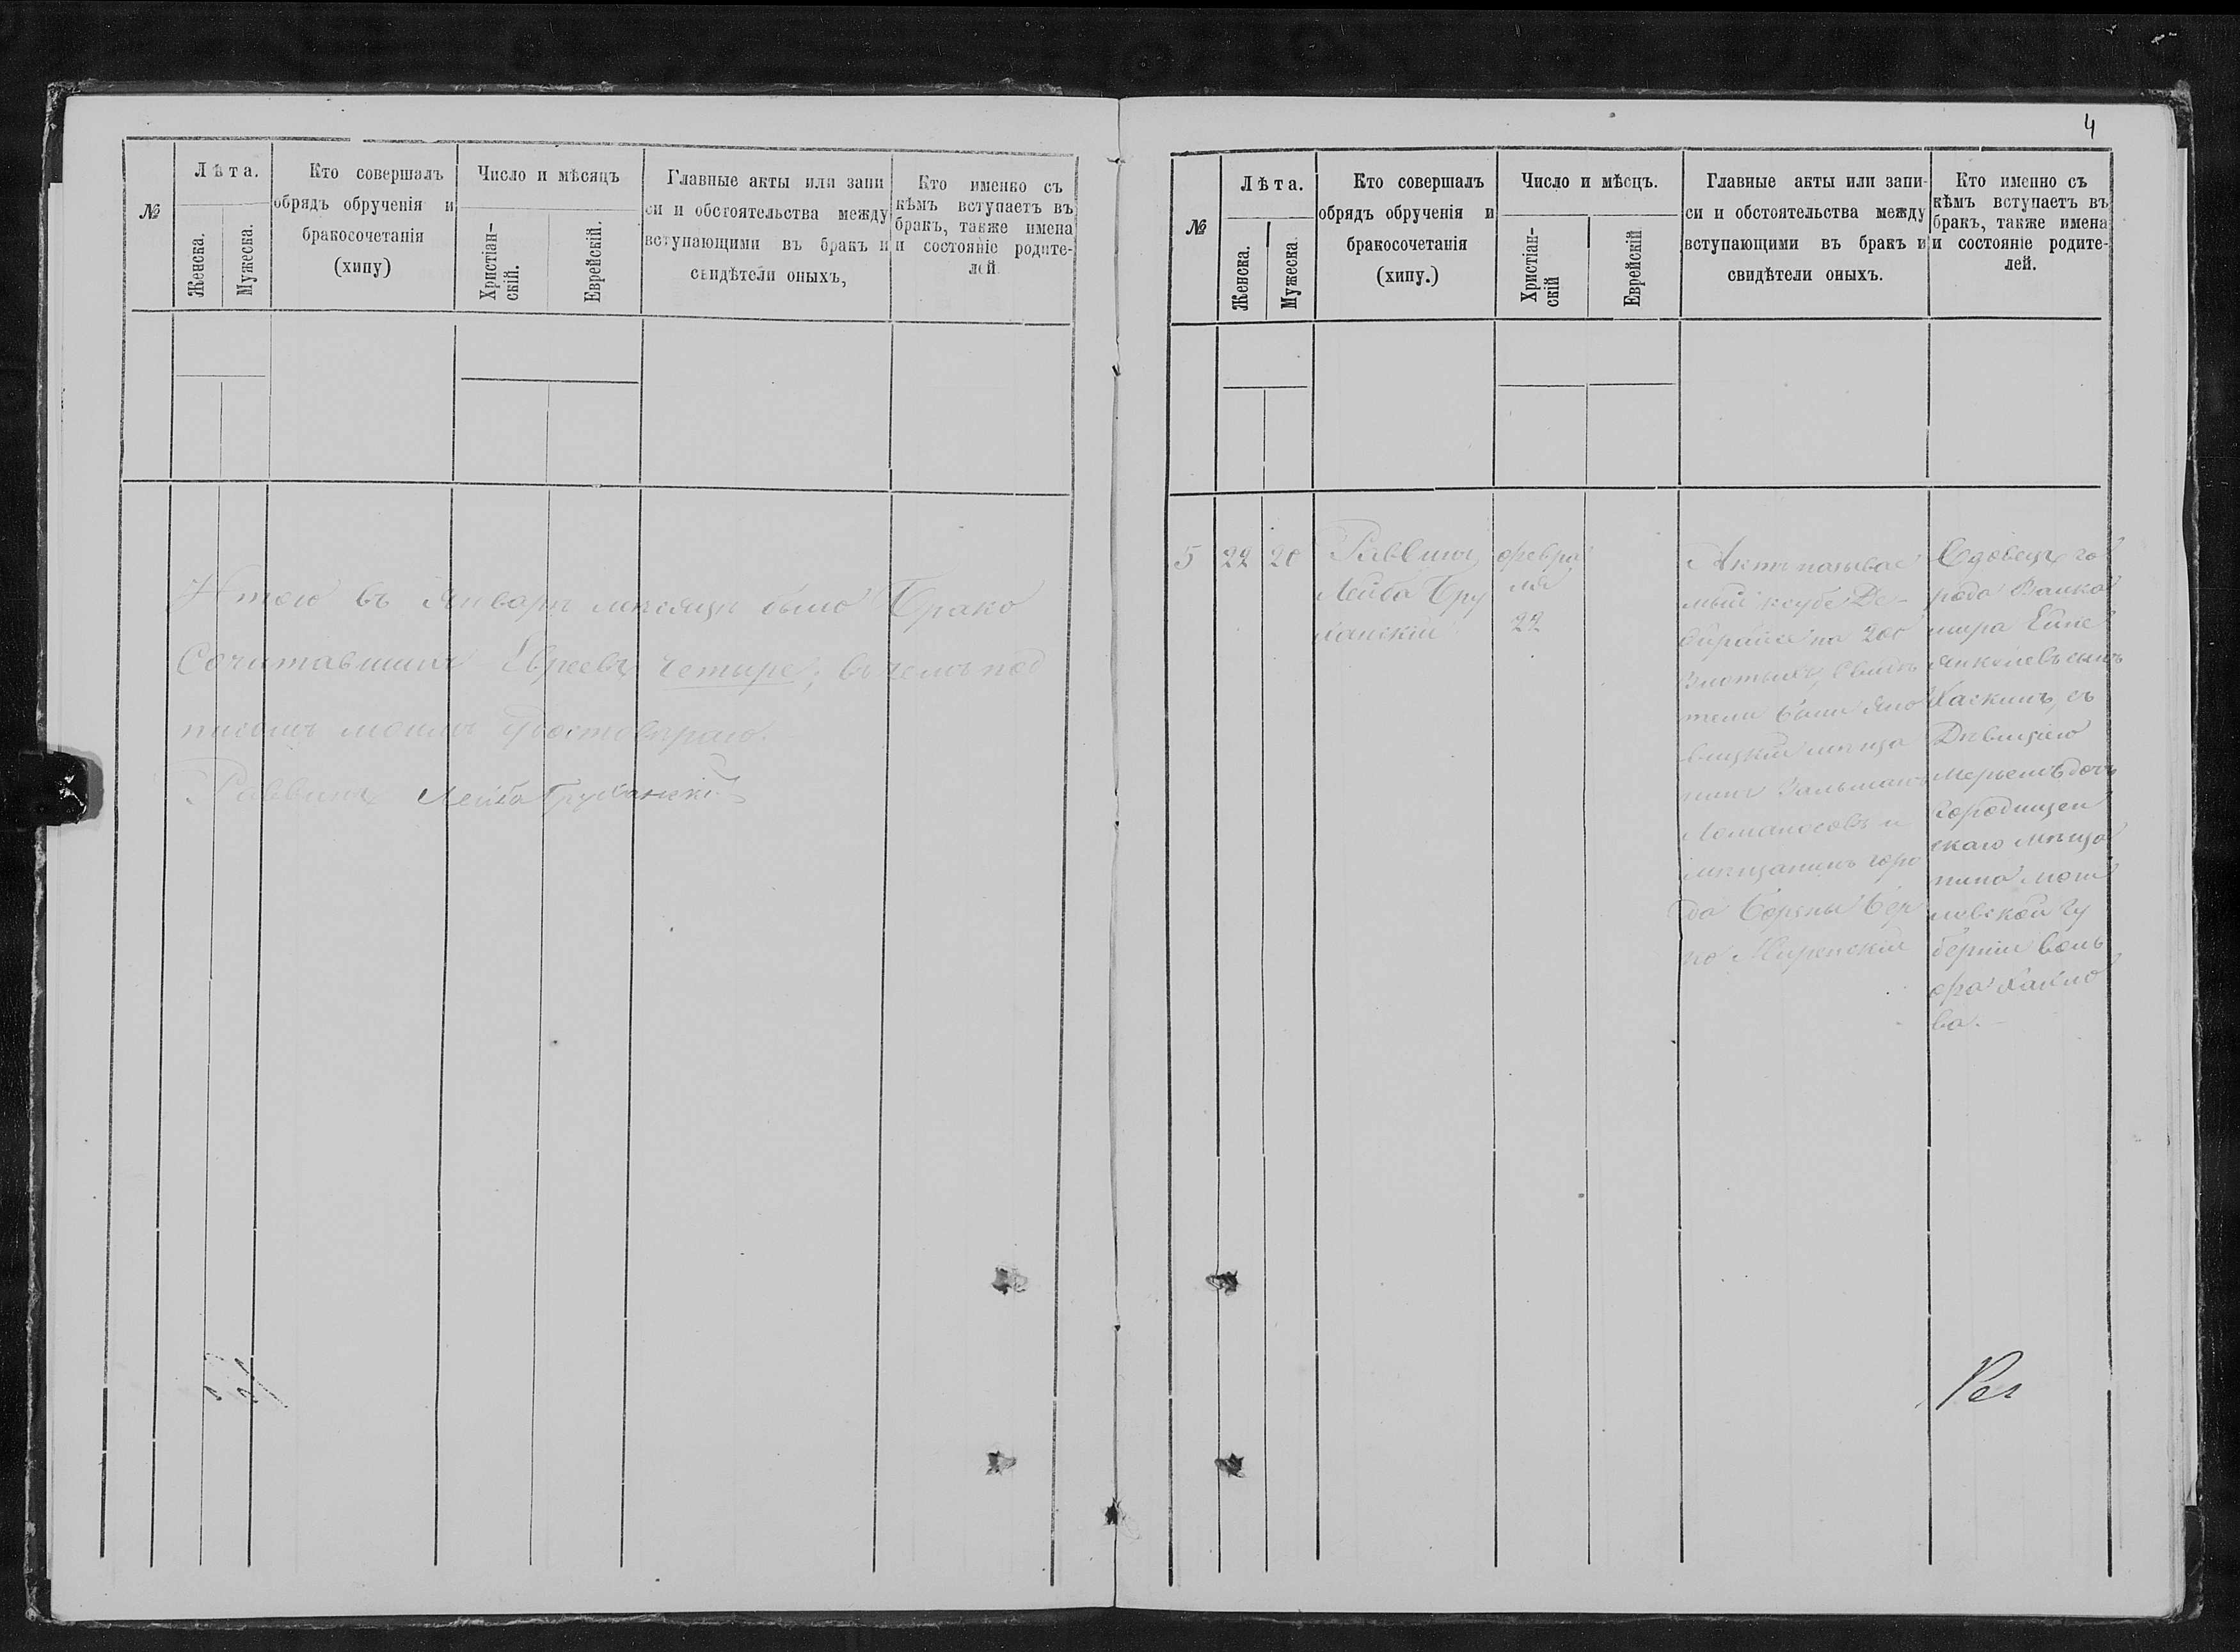 4
№
Лѣта.
Женска.
Мужеска.
Кто совершалъ
обрядъ обрученія и
бракосочетанія
(хипу)
Число и мѣсяцъ
Христіан-
скій.
Еврейскій.
Главные акты или запи
си и обстоятельства между
вступающими въ бракъ и
свидѣтели оныхъ,
Кто именно съ
кѣмъ вступаетъ въ
бракъ, также имена
и состояніе родите-
лей.
Итого въ Январѣ мѣсяцѣ было Брако
Сочитавшихъ Евреевъ четыре; въ чемъ под
писомъ моимъ удостовѣряю.
Раввинъ Лейба
№
Лѣта.
Женска.
Мужеска.
Кто совершалъ
обрядъ обрученія и
бракосочетанія
(хипу.)
Число и мѣсцъ.
Христіан-
скій
Еврейскій
Главные акты или запи-
си и обстоятельства между
вступающими въ бракъ и
свидѣтели оныхъ.
Кто именно съ
кѣмъ вступаетъ въ
бракъ, также имена
и состояніе родите-
лей.
5
22
20
Раввинъ
Лейба
февра
ля
22
Актъ называе
мый
на 200
злотыхъ, Свидѣ
тели были
мѣща
нинъ Зальманъ
и
мѣщанинъ горо
да Борзны Бер
ко
Вдовецъ го
рода
сынъ
съ
Дѣвицею
дочь
Городищен
скаго мѣща
нина Моги
левской гу
берніи Воль
фа Хаимо
ва.